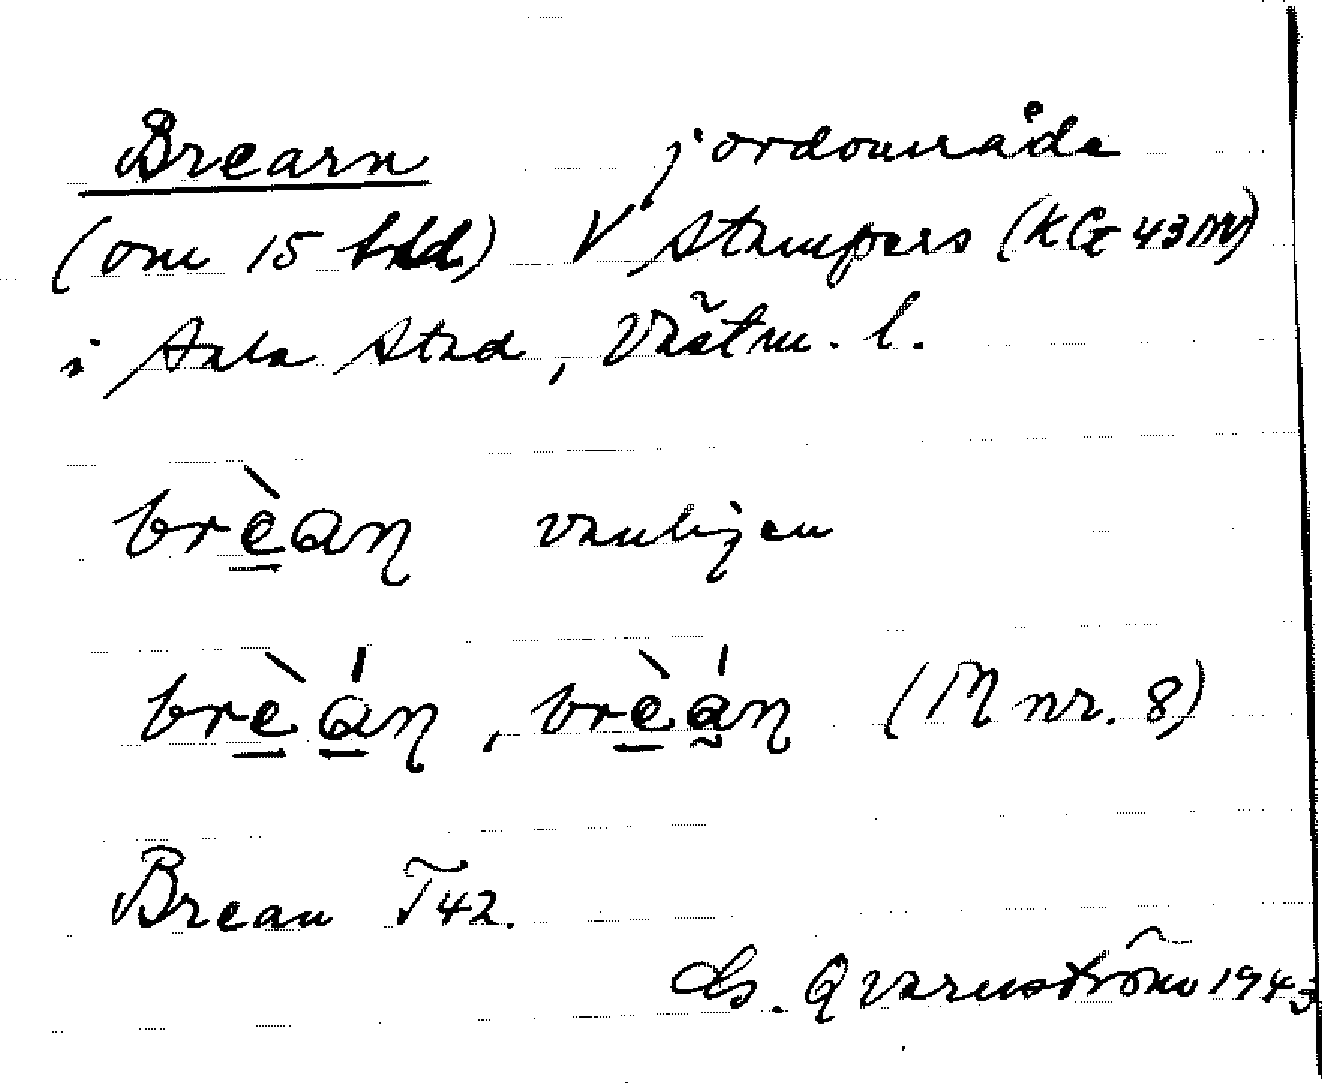 Brearn jordområde
(om 15 tnld) V Stampers (KG 43 M)
i Sala stad, Västm. l.
brèan vanligen
brèán, brèán (M nr. 8)
Brean T42.
Qvarnström 1943